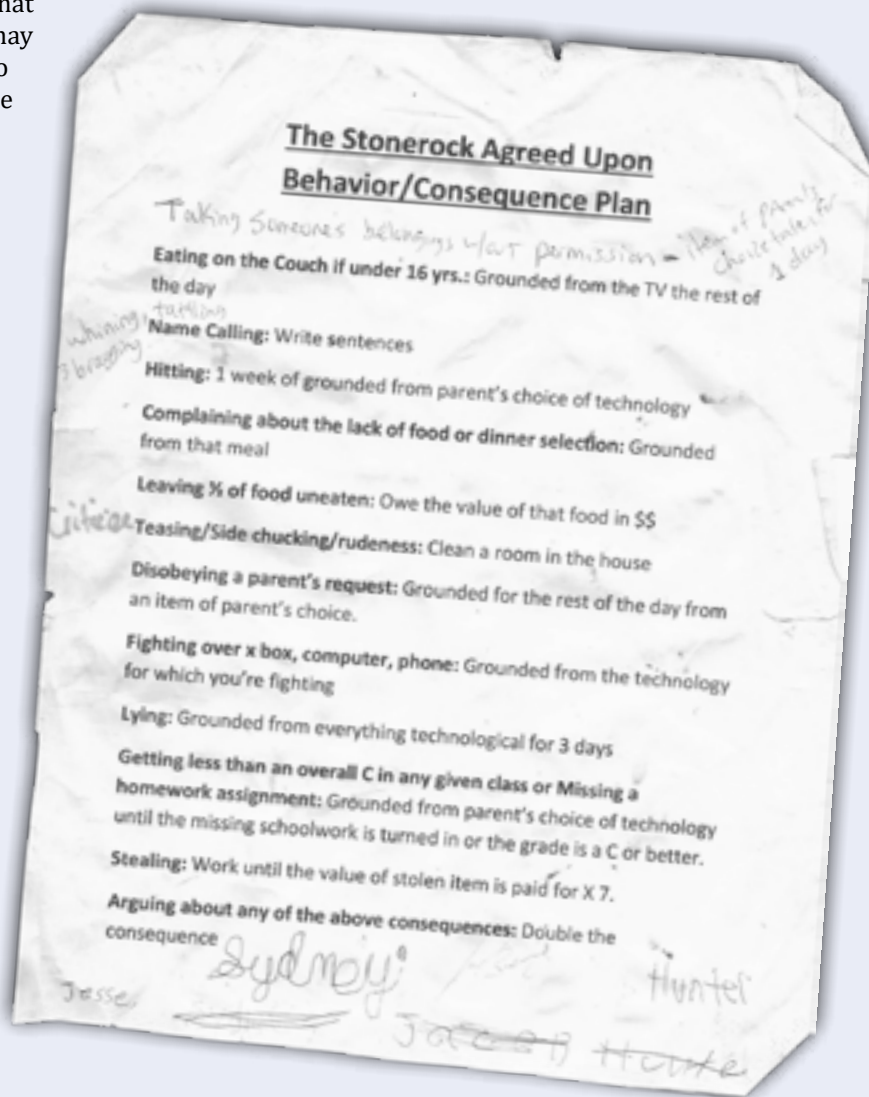 hat
may
o
e
The Stonerock Agreed Upon
Behavior/Consequence Plan
Taking someones belongings w/out permission - item of parents
choice taken for
1 day
Eating on the Couch if under 16 yrs.: Grounded from the TV the rest of
the day
whining, tattling
& bragging
Name Calling: Write sentences
Hitting: 1 week of grounded from parent's choice of technology
Complaining about the lack of food or dinner selection: Grounded
from that meal
Leaving ⅓ of food uneaten: Owe the value of that food in $$
Teasing/Side chucking/rudeness: Clean a room in the house
Disobeying a parent's request: Grounded for the rest of the day from
an item of parent's choice.
Fighting over x box, computer, phone: Grounded from the technology
for which you're fighting
Lying: Grounded from everything technological for 3 days
Getting less than an overall C in any given class or Missing a
homework assignment: Grounded from parent's choice of technology
until the missing schoolwork is turned in or the grade is a C or better.
Stealing: Work until the value of stolen item is paid for X 7.
Arguing about any of the above consequences: Double the
consequence
Sydney
Hunter
Jesse